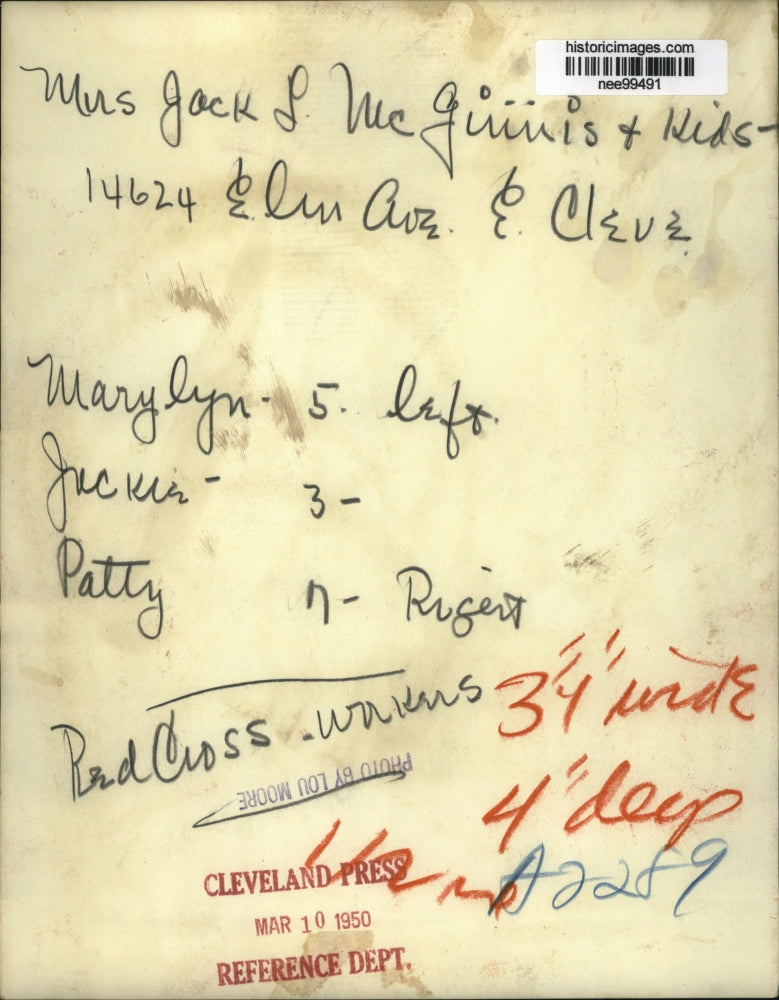 historicimages.com
nee99491
Mrs Jack L. McGinnis & Kids-
14624 Elm Ave. E. Cleve.
Marylyn- 5. left.
Jackie- 3-
Patty 7- Right
Red Cross-workers
PHOTO BY LOU MOORE
wide
4" deep
CLEVELAND PRESS
MAR 10 1950
REFERENCE DEPT.
A2289